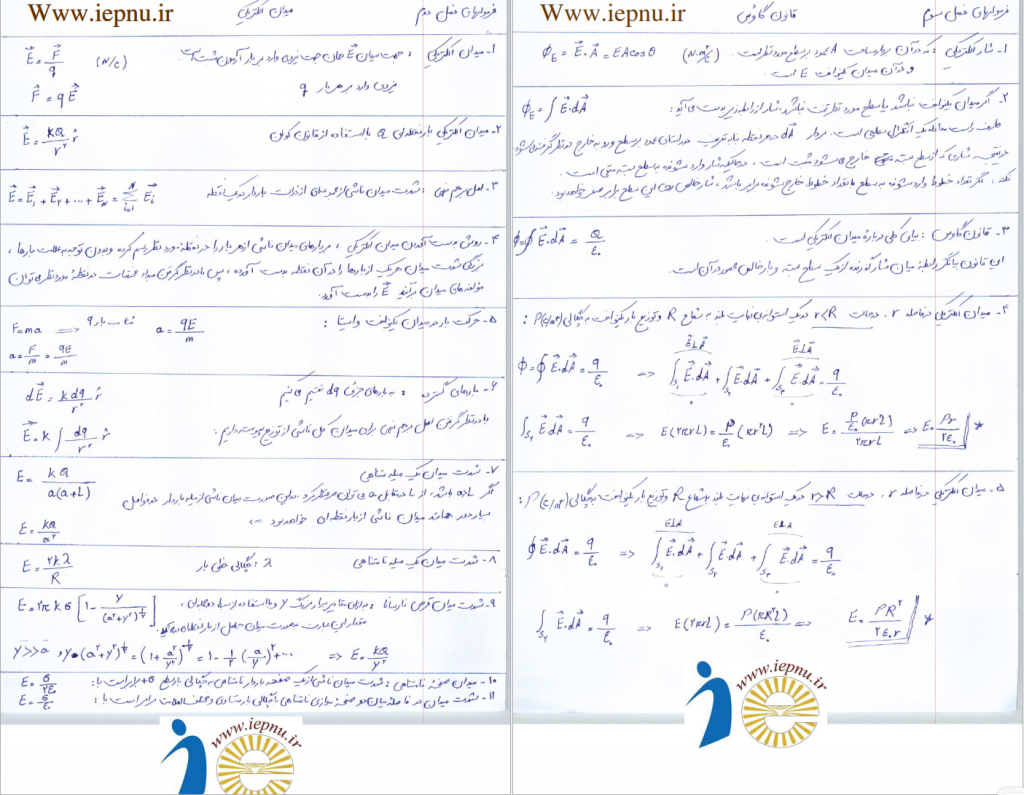 Www.iepnu.ir
فرمولهای فصل دوم میدان الکتریکی
۱- میدان الکتریکی : جهت میدان E همان جهت نیروی وارد بر بار آزمون مثبت است. (N/C) E = F/q
نیروی وارد بر هر بار q F = qE
۲- میدان الکتریکی بار نقطه ای Q با استفاده از قانون کولن E = kQ/r² r̂
۳- اصل برهم نهی : شدت میدان ناشی از مجموعه ای از ذرات باردار در یک نقطه E = E₁ + E₂ + ... + E_N = Σ E_i
۴- روش بدست آوردن میدان الکتریکی : بردارهای میدان ناشی از هر بار را در نقطه مورد نظر رسم کرده و بدون توجه به علامت بارها ،
بزرگی شدت میدان هر یک از بارها را در آن نقطه بدست آورده ، پس با در نظر گرفتن مبداء مختصات در نقطه مورد نظر می توان
مولفه های میدان برآیند E را بدست آورد.
۵- حرکت بار در میدان یکنواخت و ایستا :
F=ma ⟹ شتاب بار q a = qE/m
a = F/m = qE/m
۶- بارهای گسترده : به بارهای جزئی dq تقسیم می کنیم dE = k dq/r² r̂
با در نظر گرفتن اصل برهم نهی برای میدان کل ناشی از توزیع پیوسته داریم : E = k ∫ dq/r² r̂
۷- شدت میدان یک میله متناهی E = kQ/a(a+L)
اگر
بسیار دور همانند میدان ناشی از بار نقطه ای خواهد بود E = kQ/a²
۸- شدت میدان یک میله نامتناهی λ : چگالی خطی بار E = ۲kλ/R
۹- شدت میدان قرص نارسانا : به ازای مقادیر بسیار بزرگ y و با استفاده از بسط دو جمله ای ، E = ۲πkσ [1 - y/(a²+y²)^½]
مقدار این عبارت به صورت میدان حاصل از بار نقطه ای در می آید.
y>>a , (a²+y²)^½ = (1 + a²/y²)^-½ = 1 - ½(a/y)² + ... ⟹ E = kQ/y²
۱۰- میدان صفحه نامتناهی : شدت میدان ناشی از یک صفحه باردار نامتناهی به چگالی بار سطحی σ+ برابر است با : E = σ/۲ε₀
۱۱- شدت میدان در فاصله میان دو صفحه موازی نامتناهی با چگالی بار مساوی و مختلف العلامت برابر است با : E = σ/ε₀
www.iepnu.ir
Www.iepnu.ir
فرمولهای فصل سوم قانون گاوس
۱- شار الکتریکی : که در آن بردار مساحت A عمود بر سطح مورد نظر است (N.m²/C) Φ_E = E.A = EA cosθ
و در آن میدان یکنواخت E است.
۲- اگر میدان یکنواخت نباشد یا سطح مورد نظر تخت نباشد، شار از رابطه زیر بدست می آید : Φ_E = ∫E.dA
طرف راست معادله یک انتگرال سطحی است. بردار dA در هر نقطه بنا به تعریف در راستای عمود بر سطح و رو به خارج در نظر گرفته می شود
در نتیجه شاری که از سطح بسته خارج می شود مثبت است ، در حالیکه شار وارد شونده به سطح بسته منفی است.
نکته : اگر تعداد خطوط وارد شونده به سطح با تعداد خطوط خارج شونده برابر باشد ، شار خالص روی این سطح برابر صفر خواهد بود.
۳- قانون گاوس : بیانی کلی درباره میدان الکتریکی است. Φ=∮E.dA = Q/ε₀
این قانون بیانگر رابطه میان شار گذرنده از یک سطح بسته و بار خالص محصور در آن است.
۴- میدان الکتریکی در فاصله r در حالت r<R در یک استوانه بی نهایت بلند به شعاع R و توزیع بار یکنواخت به چگالی ρ(C/m³) :
E⊥A E⊥A
Φ=∮E.dA = q/ε₀ ⟹ ∫S₁ E.dA + ∫S₂ E.dA + ∫S₃ E.dA = q/ε₀
∫S₂ E.dA = q/ε₀ ⟹ E(۲πrL) = ρ/ε₀ (πr²L) ⟹ E = ρ/ε₀ (πr²L)/۲πrL ⟹ E = ρr/۲ε₀ *
۵- میدان الکتریکی در فاصله r در حالت r>R در یک استوانه بی نهایت بلند به شعاع R و توزیع بار یکنواخت به چگالی ρ(C/m³) :
E⊥A E⊥A
∮E.dA = q/ε₀ ⟹ ∫S₁ E.dA + ∫S₂ E.dA + ∫S₃ E.dA = q/ε₀
∫S₂ E.dA = q/ε₀ ⟹ E(۲πrL) = ρ(πR²L)/ε₀ ⟹ E = ρR²/۲ε₀r *
www.iepnu.ir